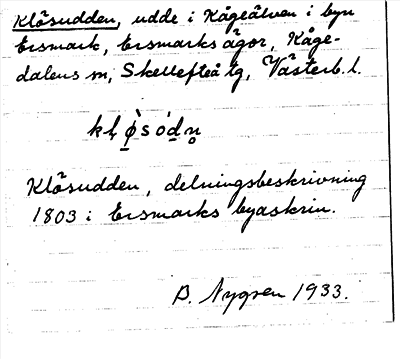 Klösudden, udde i Kågeälven i byn
Ersmark, Ersmarks ägor, Kåge-
dalens sn, Skellefteå tg, Västerb. l.
Klösudden, delningsbeskrivning
1803 i Ersmarks byaskrin.
B. Nygren 1933.